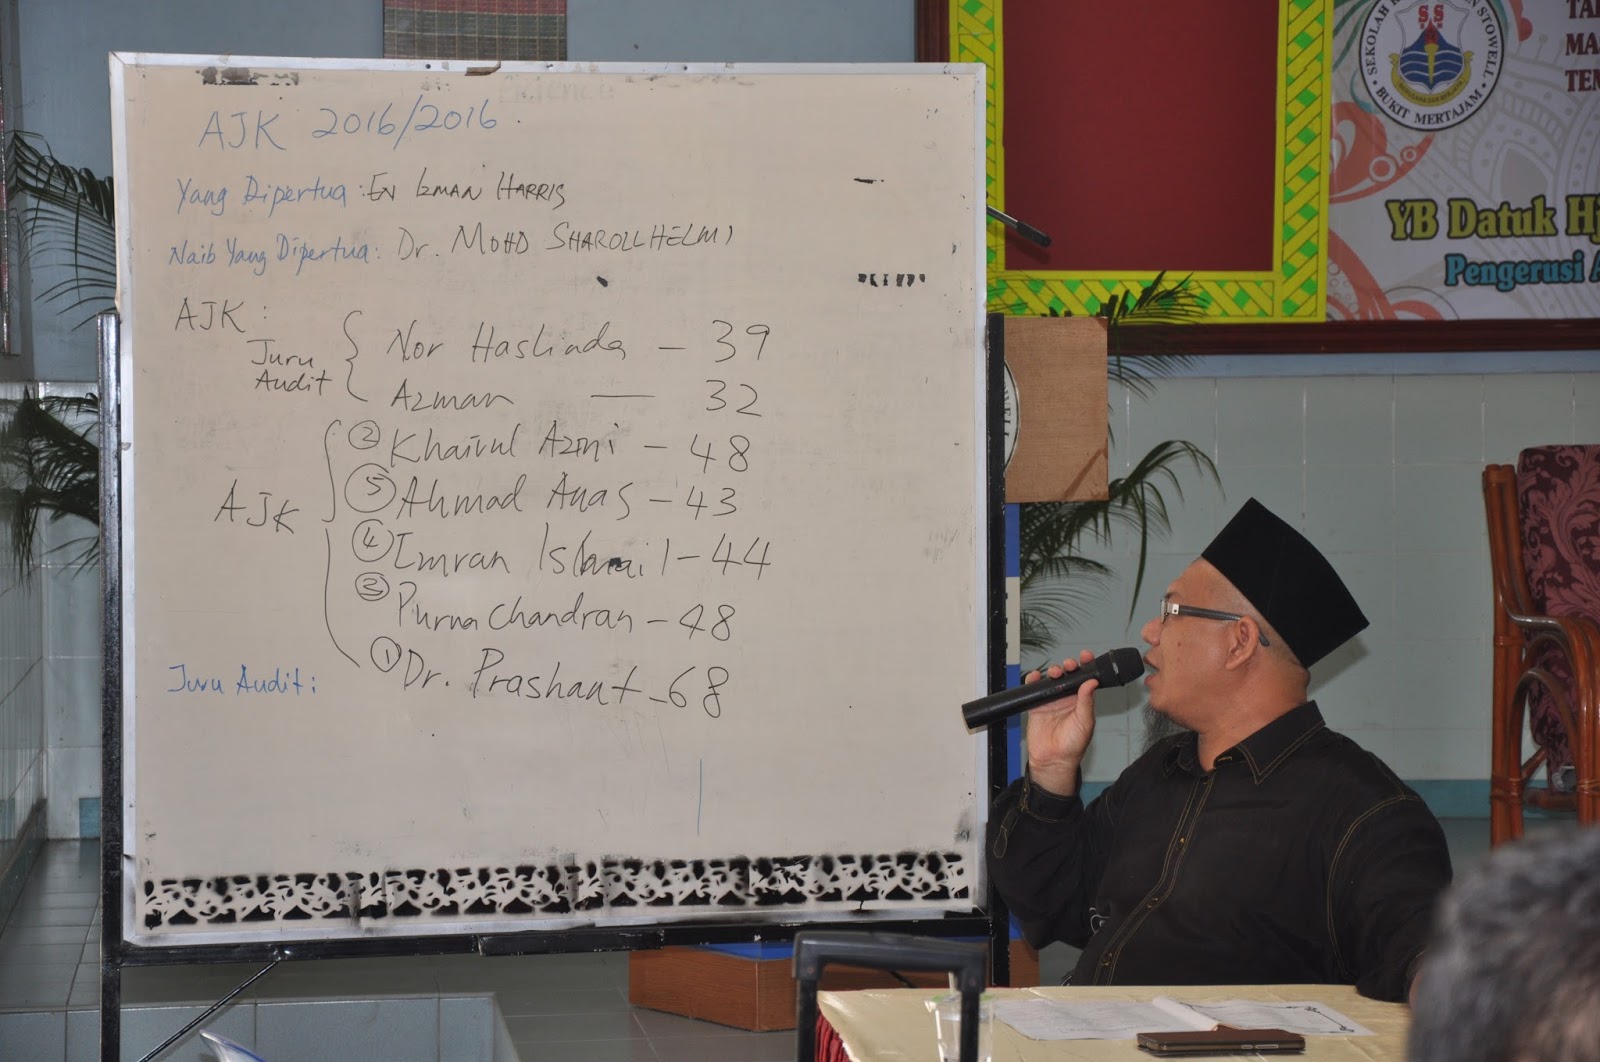 AJK 2016/2016
Yang Dipertua : EN IZMAN HARRIS
Naib Yang Dipertua : Dr. MOHD SHAROLLHELMI
AJK :
Juru Audit { Nor Haslinda - 39
Azman — 32
AJK { ② Khairul Azmi - 48
⑤ Ahmad Anas - 43
④ Imran Ismail - 44
③ Purna Chandran - 48
① Dr. Prashant - 68
Juru Audit :
SEKOLAH STOWELL
BUKIT MERTAJAM
SS
YB Datuk Hj
Pengerusi